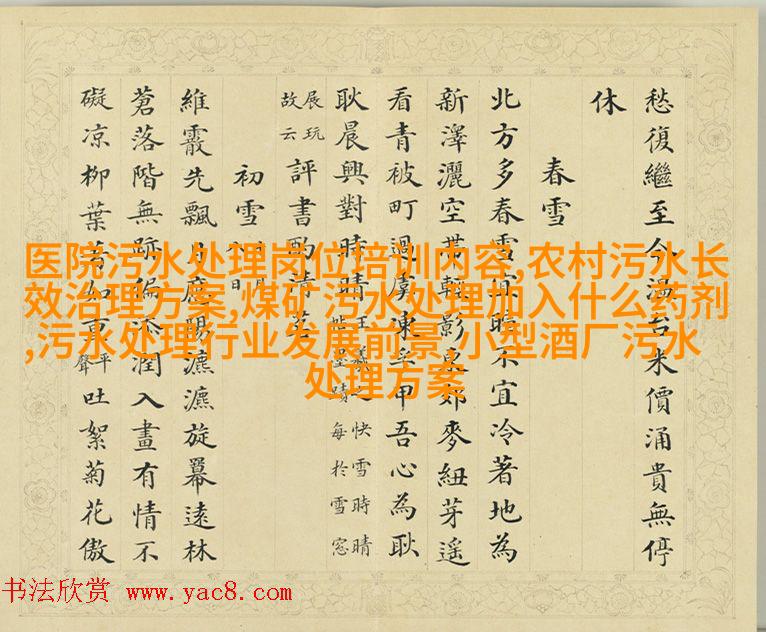 愁復繼至今米價涌貴無停
休
春雪
北方多春雪宜不宜冷著地為
新澤灑空影郊麥紐芽遥
看青被町甲吾心為耿
耿晨興對時晴
王羲之快雪時晴
墨蹟每於雪窓
展玩
故云
評書酌清茗
初雪
維霰先飄瀌瀌旋羃遠林
蒼落階無跡偏添潤入畫有情不
礙凉柳葉若如重
平
聲
吐絮菊花傲
医院污水处理岗位培训内容,农村污水长
效治理方案,煤矿污水处理加入什么药剂
,污水处理行业发展前景,小型酒厂污水
处理方案
书法欣赏 www.yac8.com